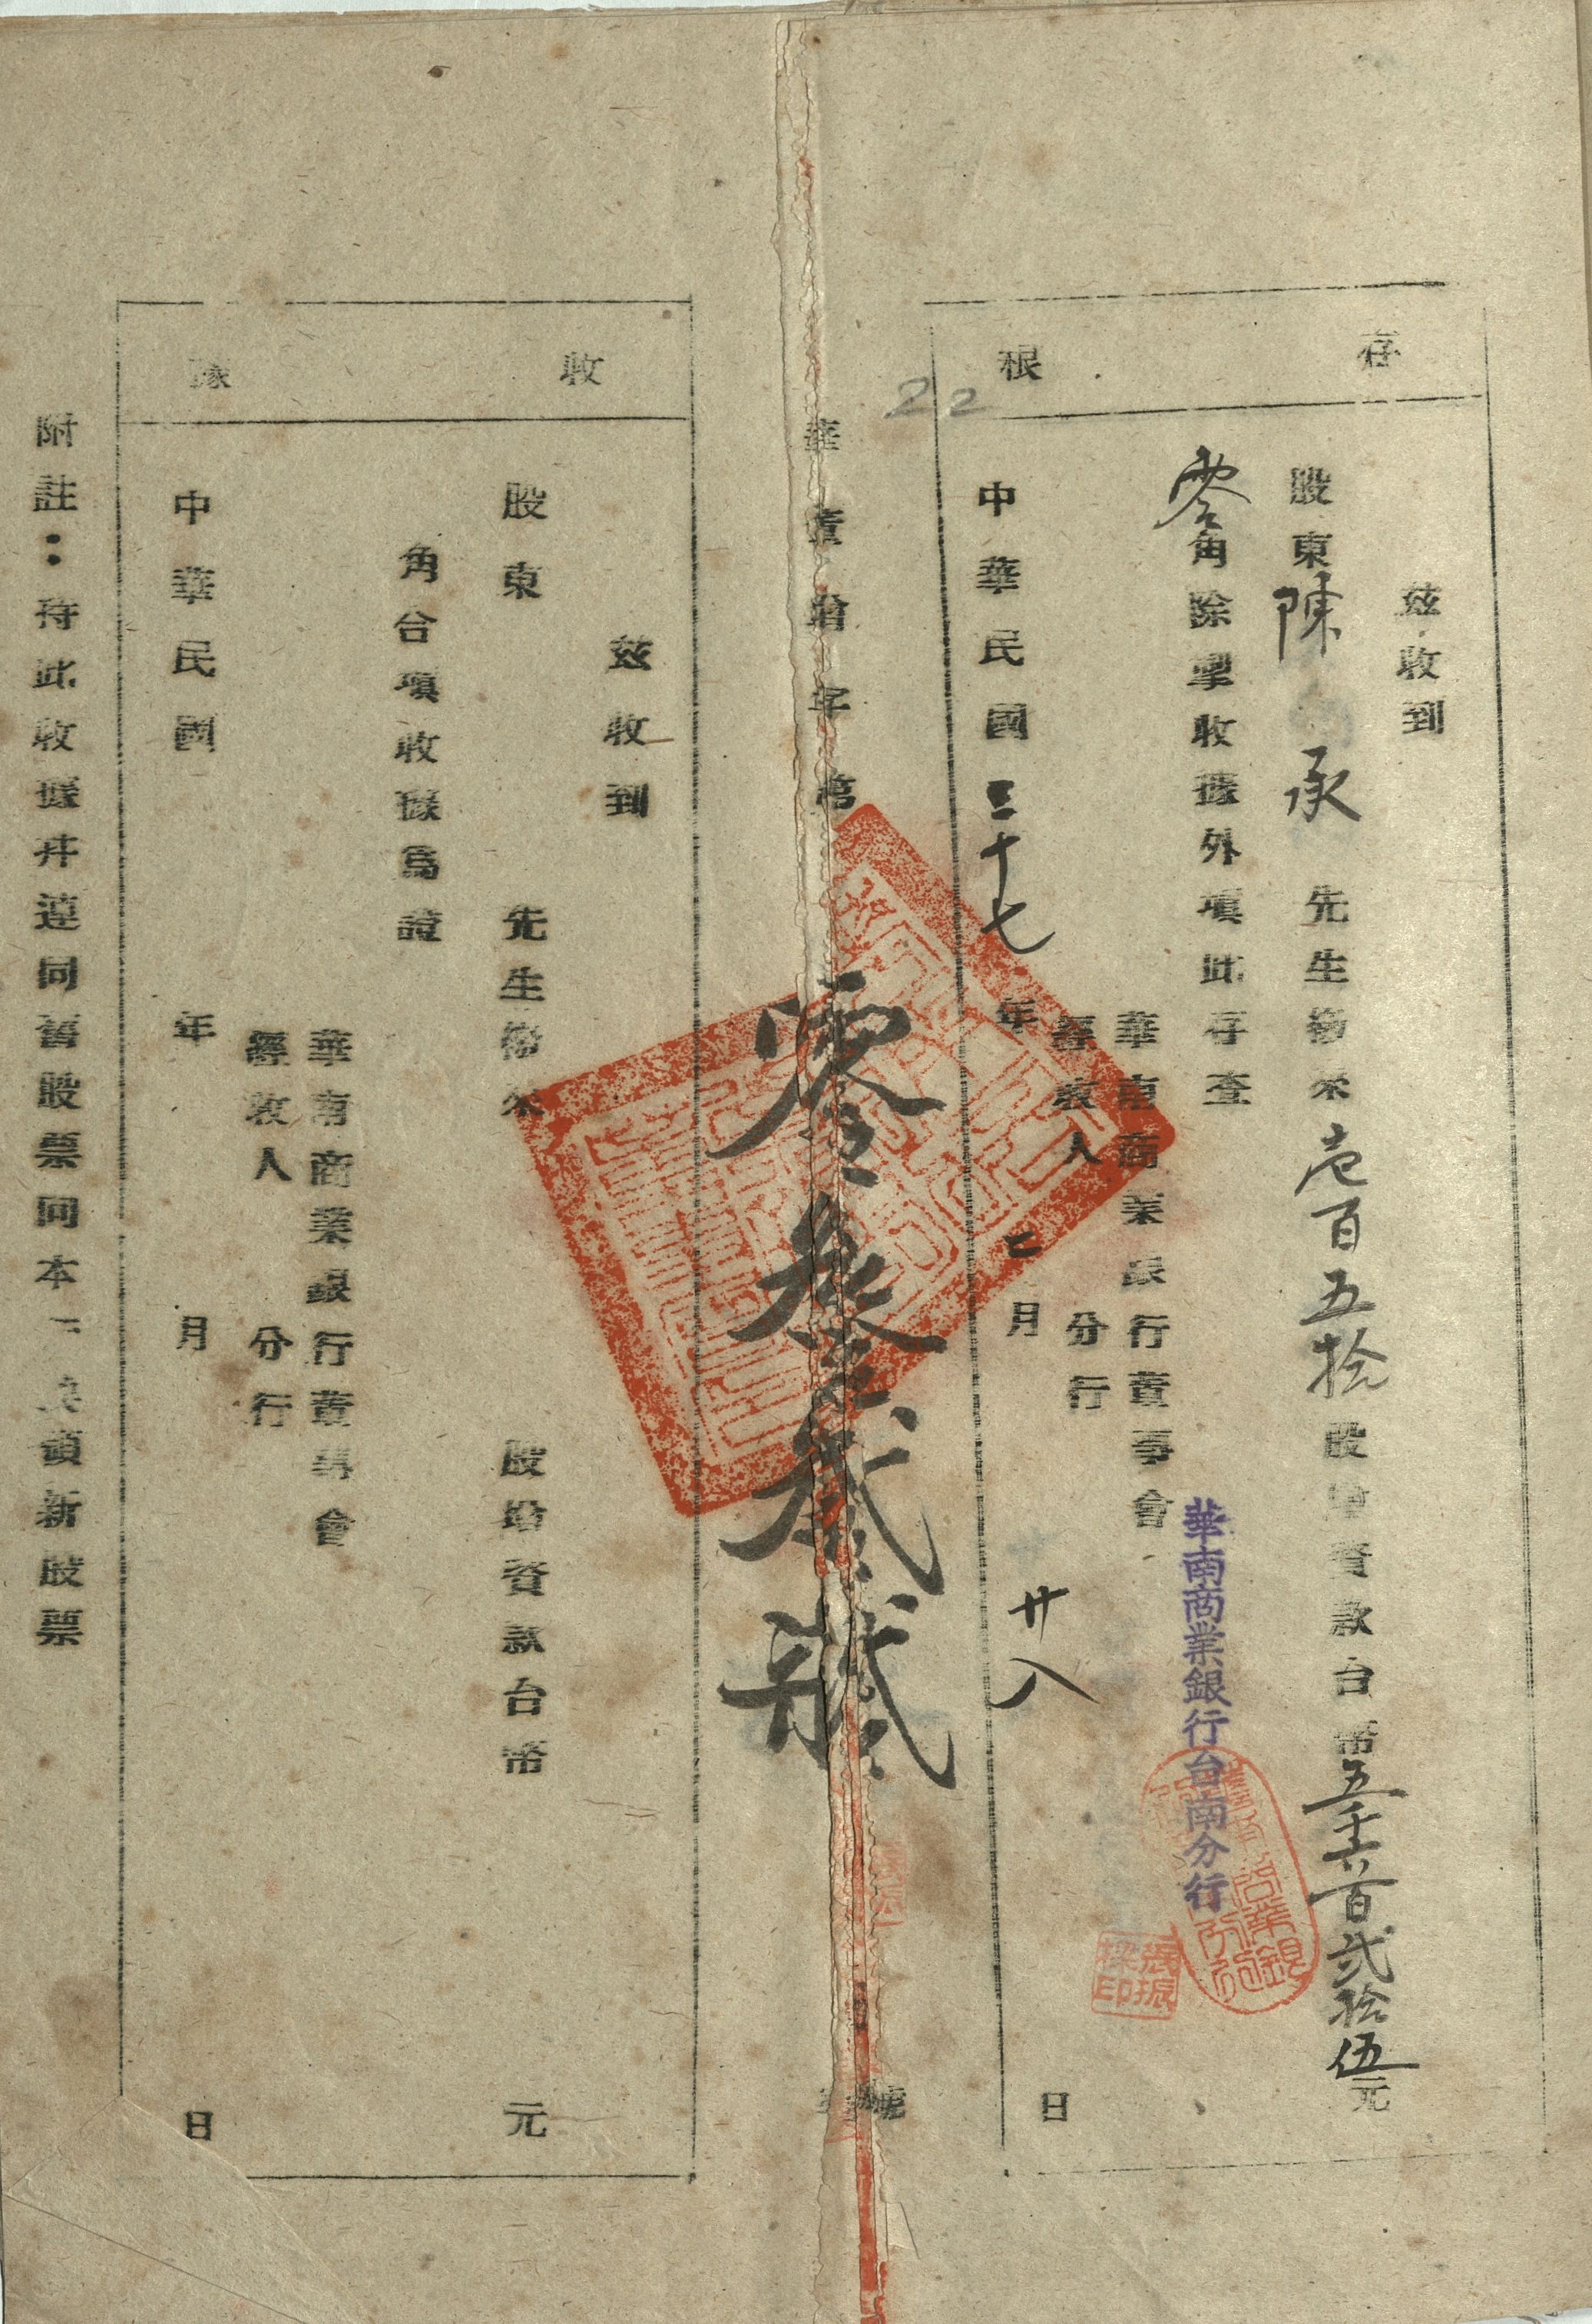 存根
茲收到
股東陳 承 先生繳來壱百五拾股增資款台幣五千六百弍拾伍元
零角除掣收據外項此存查
華南商業銀行台南分行
華南商業銀行董事會
經收人 分行
張振樑印
中華民國三十七年二月廿八日
22
華董增字第零叄貳 號
收據
茲收到
股東 先生繳來 股增資款台幣 元
角合項收據爲證
華南商業銀行董事會
經收人 分行
中華民國 年 月 日
附註:持此收據幷連同舊股票向本 換領新股票